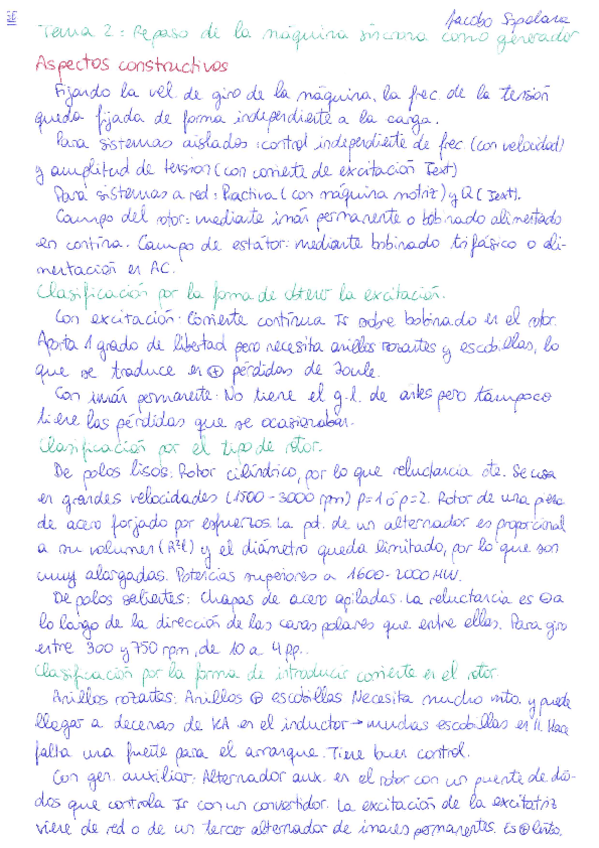 Jacobo Sopelana
Tema 2: Repaso de la máquina síncrona como generador
Aspectos constructivos
Fijando la vel. de giro de la máquina, la frec. de la tensión
queda fijada de forma independiente a la carga.
Para sistemas aislados: control independiente de frec. (con velocidad)
y amplitud de tensión (con corriente de excitación Iext)
Para sistemas a red: Practiva (con máquina motriz) y Q (Iext).
Campo del rotor: mediante imán permanente o bobinado alimentado
en contínua. Campo de estátor: mediante bobinado trifásico o ali-
mentación en AC.
Clasificación por la forma de obtener la excitación.
Con excitación: Corriente contínua Ir sobre bobinado en el rotor.
Aporta 1 grado de libertad pero necesita anillos rozantes y escobillas, lo
que se traduce en ⊕ pérdidas de Joule.
Con imán permanente: No tiene el g.l. de antes pero tampoco
tiene las pérdidas que se ocasionaban.
Clasificación por el tipo de rotor.
De polos lisos: Rotor cilíndrico, por lo que reluctancia cte. Se usa
en grandes velocidades (1500-3000 rpm) p=1 ó p=2. Rotor de una pieza
de acero forjado por esfuerzos. La pot. de un alternador es proporcional
a su volumen (R²l) y el diámetro queda limitado, por lo que son
muy alargadas. Potencias superiores a 1600-2000 MW.
De polos salientes: Chapas de acero apiladas. La reluctancia es ⊖ a
lo largo de la dirección de las caras polares que entre ellas. Para giro
entre 300 y 750 rpm, de 10 a 4 pp.
Clasificación por la forma de introducir corriente en el rotor.
Anillos rozantes: Anillos ⊕ escobillas Necesita mucho mto. y puede
llegar a decenas de KA en el inductor → muchas escobillas en //. Hace
falta una fuente para el arranque. Tiene buen control.
Con gen. auxiliar: Alternador aux. en el rotor con un puente de dio-
dos que controla Ir con un convertidor. La excitación de la excitatriz
viene de red o de un tercer alternador de imanes permanentes. Es ⊕ lento.